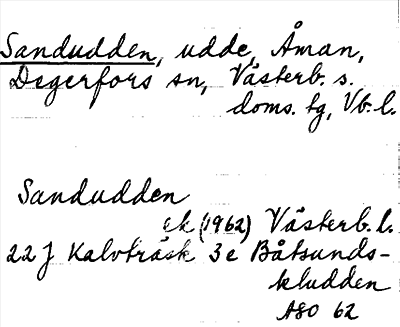 Sandudden, udde, Åman,
Degerfors sn, Västerb. s.
doms. tg, Vb. l.
Sandudden
ek (1962) Västerb. l.
22 J Kalvträsk 3 e Båtsunds-
kludden
ASO 62